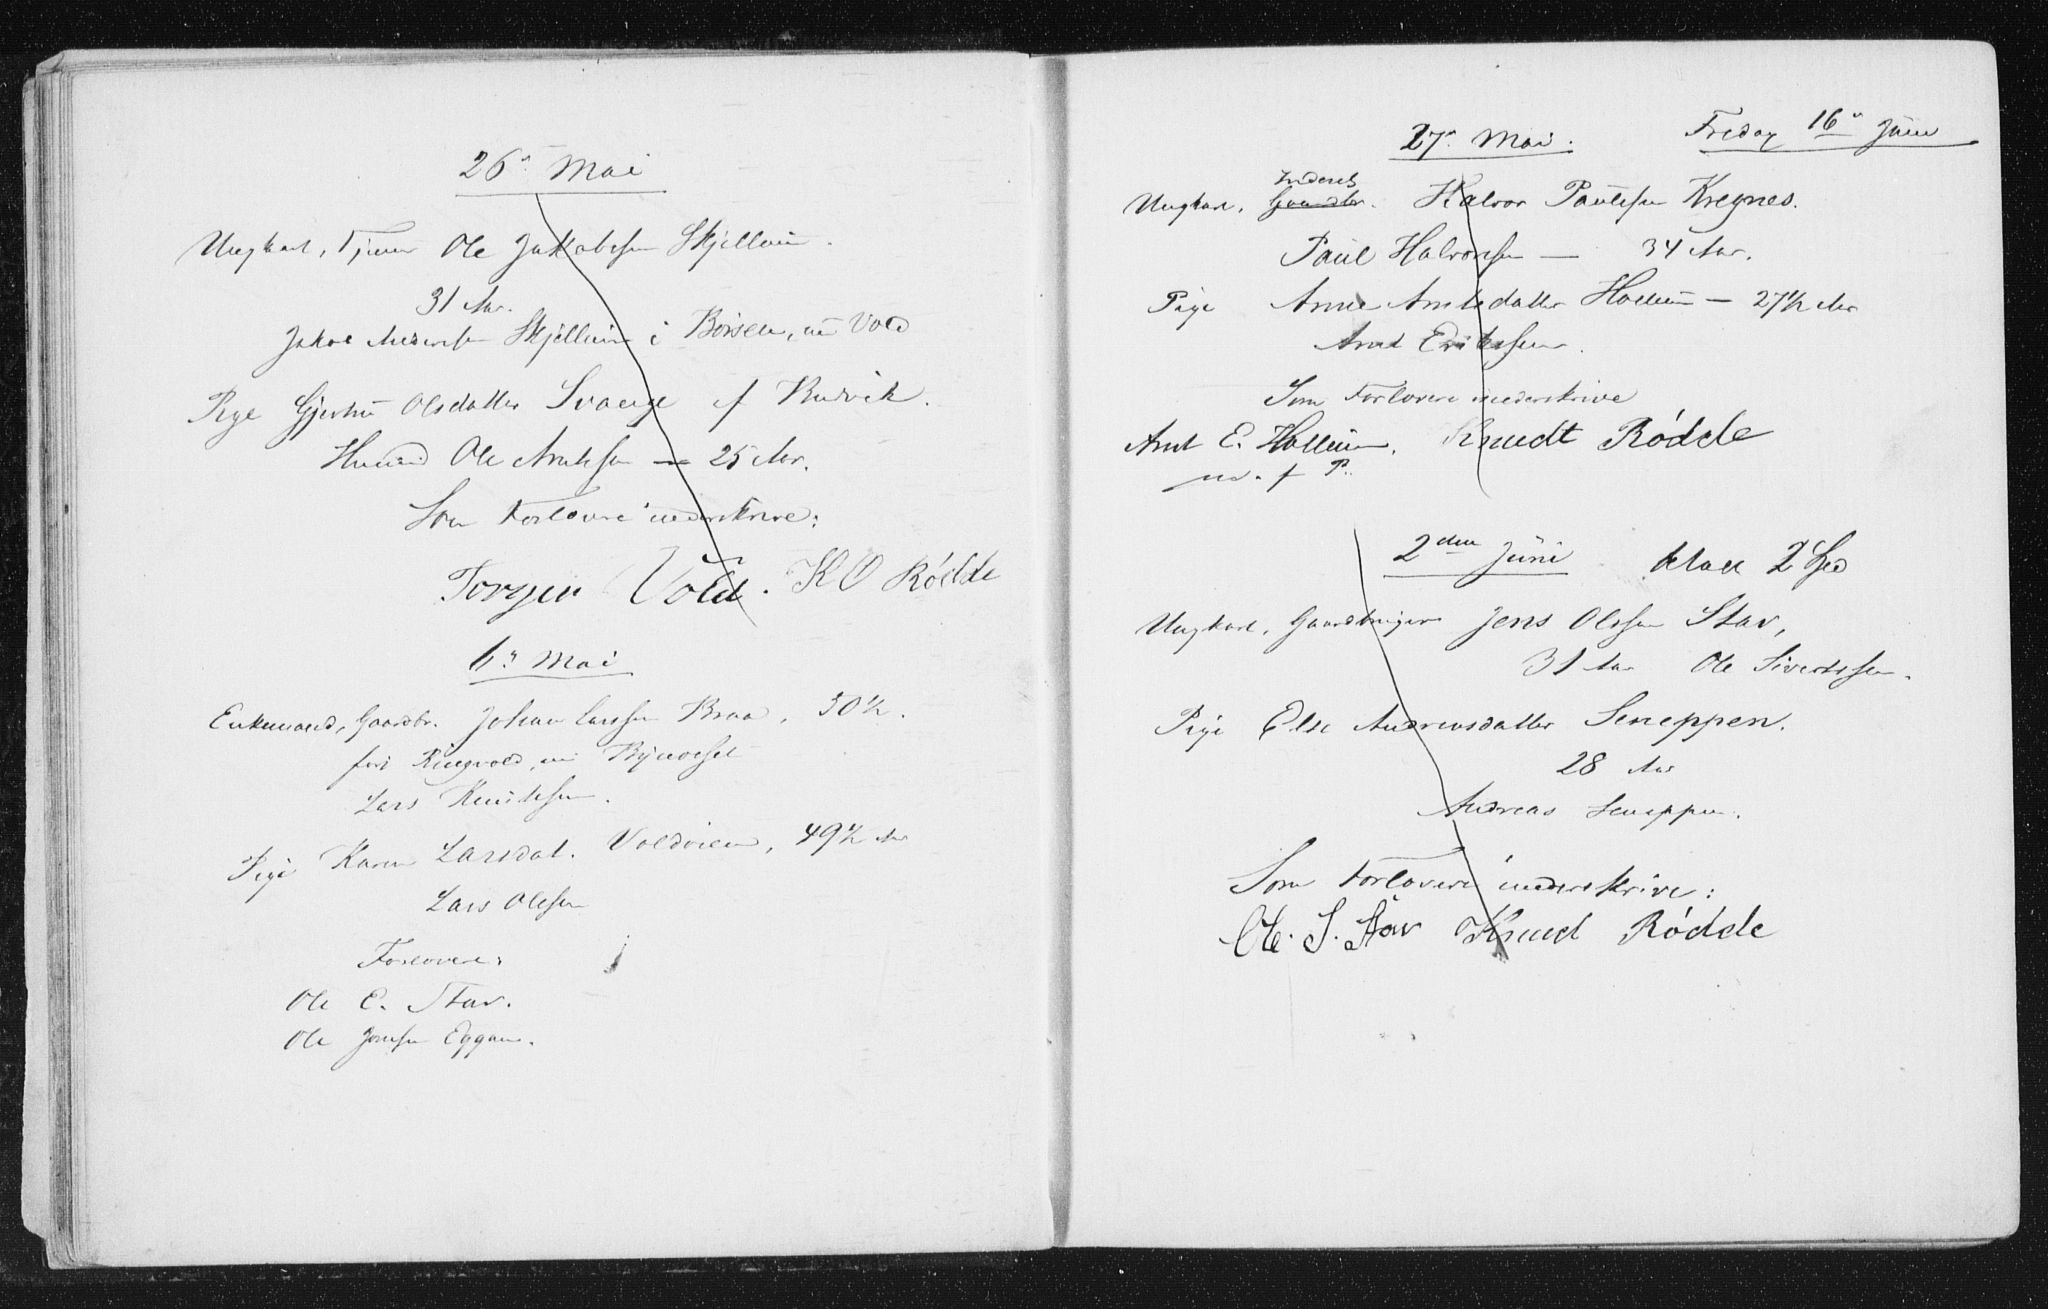 26de Mai
Ungkarl, Tjener Ole Jakobsen Skjellum.
31 Aar.
Jakob Andersen Skjellum i Børsen, nu Vold
Pige Gjertru Olsdatter Svange f Budvik.
Husmd Ole Arntsen — 25 Aar.
Som Forlovere underskrive:
Torger Vold. K O Rødde
6te Mai
Enkemand, Gaardbr. Johan Larssen Braa, 50½.
født Ringvold, nu Bynesset
Lars Knutsen.
Pige Karen Larsdat. Voldvien, 49½ Aar
Lars Olsen
Forlovere:
Ole E. Stav.
Ole Jonsen Eggan.
27de Mai. Fredag 16de Juni
Ungkarl, Inderst Gaardbr. Halvor Paulsen Kregnes.
Paul Halvorsen — 34 Aar.
Pige Anne Arntsdatter Hollum — 27½ Aar
Arnt Eriksen.
Som Forlovere underskrive
Arnt E. Hollum. Knudt Rødde
m. f P.
2den Juni Klok 2
Ungkarl, Gaardbruger Jens Olsen Stav,
31 Aar Ole Sivertsen.
Pige Else Andreasdatter Seneppen.
28 Aar
Andreas Seneppen.
Som Forlovere underskrive:
Ole. S. Stav Knud Rødde